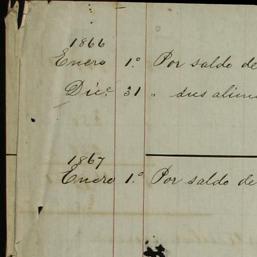 1866
Enero 1º Por saldo de
Dice 31 " sus
1867
Enero 1º Por saldo de